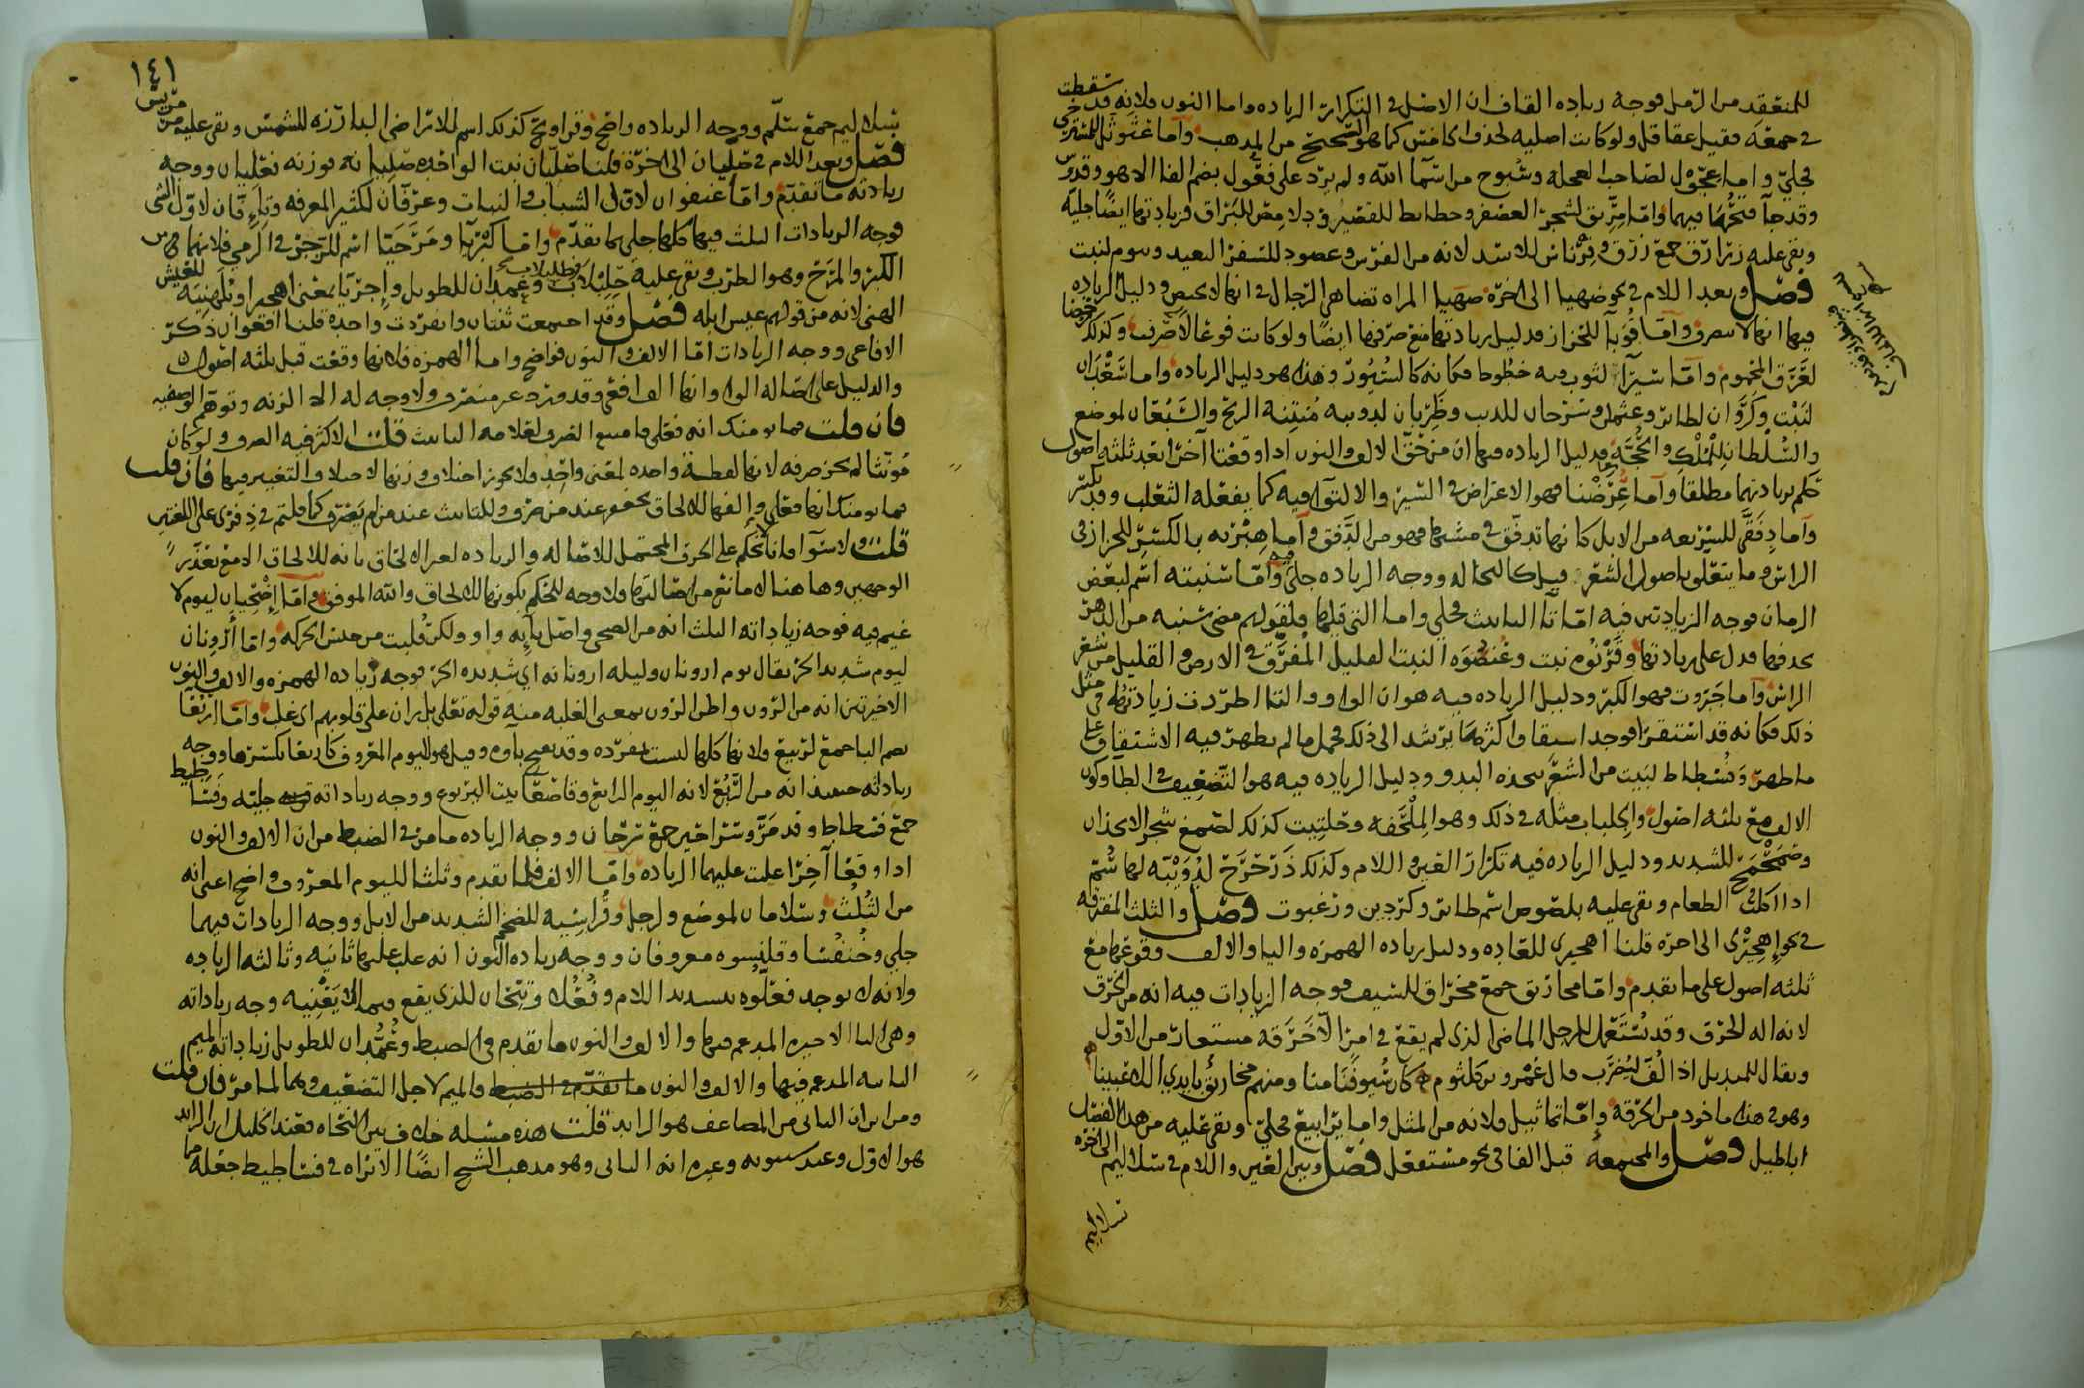 للمنعقد من الرمل فوجه زياده القاف ان الاصل في التكرار الزياده واما النون فلانه قد سقطت
في جمعه فقيل عقاقل ولو كانت اصليه لحذف الخامس كما هو الصحيح من المذهب واما عثوثل للمسترخى
فجلي واما عجول لصاحب العجله وسبوح من اسما الله ولم يرد على فعول بضم الفا الا هو وقدوس
وقد جا فتحهما فيهما واما مريق لشجر العصفر وحطائط للقصير ودلامص للبراق فزيادتها ايضا جليه
وبقى عليه زرارق جمع زرق وفرناس للاسد لانه من الفرس وعصود للسفر البعيد وسوم لنبت
فصل وبعد اللام في نحو ضهيا الى اخره ضهيا المراه تضاهى الرجال في انها لا تحيض ودليل الزياده
فيها انها لا تنصرف واما قوبآ للحزاز فدليل زيادتها مع صرفها ايضا ولو كانت فوعالا صرفت وكذلك
لعرق المحموم واما سيرآ لثوب فيه خطوط فكانه كالسيور وهذا هو دليل الزياده واما سعدان
لنبت وكروان لطائر وعثمان وسرحان للذيب وظربان لدويبه منتنة الريح والسبعان لموضع
والسلطان للملك والحجة فدليل الزياده فيها ان من حق الالف والنون اذا وقعتا آخرا بعد ثلثه اصول
حكم بزيادتهما مطلقا وآما عرضنا فهو الاعتراض في السير والالتوآ فيه كما يفعله الثعلب وقد تكسر
وآما دفقى للسريعه من الابل كانها تدفق في مشيها فهو من الدفق وآما هبريه بالكسر للحزاز في
الراس وما يتعلق باصول الشعر كالنخاله ووجه الزياده جلي وآما سنبته اسم لبعض
الزمان فوجه الزيادتين فيه اما تا التانيث فجلي واما التى قبلها فلقولهم مضى سنبه من الدهر
بحذفها فدل على زيادتها وقرنوه نبت وعنصوه النبت القليل المفرق في الارض والقليل من شعر
الراس وآما جبروت فهو الكبر ودليل الزياده فيه هو ان الواو والتا اطردت زيادتهما في مثل
ذلك فكانه قد استقرا فوجد اشتقاق اكثرها يرشد الى ذلك فحمل ما لم يظهر فيه الاشتقاق على
ما ظهر وفسطاط لبيت من الشعر تتخذه البدو ودليل الزياده فيه هو التضعيف في الطا وكون
الالف مع ثلثه اصول وجلباب مثله في ذلك وهو الملحفه وحلتيت كذلك لصمغ شجر الانجذان
وصمحمح للشديد ودليل الزياده فيه تكرار العين واللام وكذلك ذرحرح لدويبة لها سم
اذا اكلت الطعام وبقى عليه بلصوص اسم طائر وكرديبن وزغبوت فصل والثلث المفترقه
في نحو إهجيرى الى اخره قلنا اهجيرى للعاده ودليل زياده الهمزه واليا والالف وقوعها مع
ثلثه اصول على ما تقدم واما مخاريق جمع مخراق للسيف فوجه الزيادات فيه انه من الخرق
لانه اله للخرق وقد تستعمل للرجل الماضى الذى لم يقع في امر الا خرقه مستعار من الاول
ويقال للمنديل اذا لف ليضرب قال عمرو بن كلثوم كان سيوفنا منا ومنهم مخاريق بايدي اللاعبينا
وهو في هذا ماخوذ من الخرقه واما تماثيل فلانه من المثل واما يرابيع فجلي وبقى عليه من هذا الفصل
اباطيل فصل والمجتمعه قبل الفا في نحو مستفعل فصل وبين العين واللام في سلاليم الى اخره
سلاليم
١٤١
سلاليم جمع سلم ووجه الزياده واضح وقراويح كذلك اسم للاراضى البارزه للشمس وبقى عليه مرمريس
فصل وبعد اللام في صليان الى اخره قلنا صليان نبت الواحده صليانه فوزنه فعليان ووجه
زيادته ما تقدم واما عنفوان لاول الشباب والنبات وعرفان لكثير المعرفه وتئفان لاول الشى
فوجه الزيادات الثلث فيها كلها جلي بما تقدم واما كبريا ومرحيا اسم للزجر في الرمي فلانهما من
الكبر والمرح وهو الطرب وبقى عليه جلبلاب وعمدان للطويل وإجريا بمعنى اهجيرا وبلهنيه للعيش
الهنى لانه من قولهم عيش ابله فصل وقد اجتمعت ثنتان وانفردت واحده قلنا افعوان ذكر
الافاعى ووجه الزيادات اما الالف والنون فواضح واما الهمزه فلانها وقعت قبل ثلثه اصول
والدليل على اصاله الواو انها الف افعى وقد ورد غير منصرف ولا وجه له الا الزنه وتوهم الوصفيه
فان قلت فما يومنك انه فعلى فامتنع الصرف لعلامه التانيث قلت الاكثر فيه الصرف ولو كان
مونثا لم يجز صرفه لانها لفظة واحده لمعنى واحد ولا يجوز اختلاف وزنها لاختلاف التغيير فيها فان قلت
فما يومنك انها فعلى والفها للالحاق عند من صرف وللتانيث عند من لم يصرف كما قلتم في ذفرى على اللغتين
قلت ولا سوآ فانا نحكم على الحرف المحتمل للاصاله والزياده لغير الالحاق بانه للالحاق الا مع تعذر
الوجهين وهاهنا لا مانع من اصالتها فلا وجه للحكم بكونها للالحاق والله الموفق واما إضحيان ليوم لا
غيم فيه فوجه زياداته الثلث انه من الضحى واصل يآيه واو ولكن قلبت من جنس الحركه واما أرونان
ليوم شديد الحر يقال يوم ارونان وليله ارونانه اى شديده الحر فوجه زياده الهمزه والالف والنون
الاخيرتين انه من الرون واطن الرون بمعنى الغلبه منه قوله تعلى بل ران على قلوبهم اى غلب واما اربعآ
بضم البا جمع لربيع ولانها كلها ليست بمفرده وقد تفتح باوه وقيل هو اليوم المعروف كاربعا بكسرها ووجه
زياداته حينئذ انه من الربع لانه اليوم الرابع وقاصعا بيت اليربوع ووجه زياداته جليه وفساطيط
جمع فسطاط وقد مر وسراحين جمع سرحان ووجه الزياده ما مر في الضبط من ان الالف والنون
اذا وقعا آخرا غلبت عليهما الزياده واما الالف فلما تقدم وثلثا لليوم المعروف واضح اعنى انه
من الثلث وسلامان لموضع ولرجل وقراسيه للضخم الشديد من الابل ووجه الزيادات فيهما
جلي وخنفسا وقلنسوه معروفان ووجه زياده النون انه غلب عليها ثانيه وثالثه الزياده
ولانه لا يوجد فعلوه بتشديد اللام وفعلل وتيحان للذى يقع فيما لا يعنيه وجه زياداته
وهي اليا الاخيره المدغم فيها والالف والنون ما تقدم في الضبط وعمدان للطويل زياداته الميم
الثانيه المدغم فيها والالف والنون ما تقدم في الضبط فالميم لاجل التضعيف وهما لما مر فان قلت
ومن اين ان الثانى من المضاعف هو الزايد قلت هذه مسئله خلاف بين النحاه فعند الخليل ان الزايد
هو الاول وعند سيبويه وغيره انه الثانى وهو مذهب الشيخ ايضا الا تراه في فساطيط جعله مما